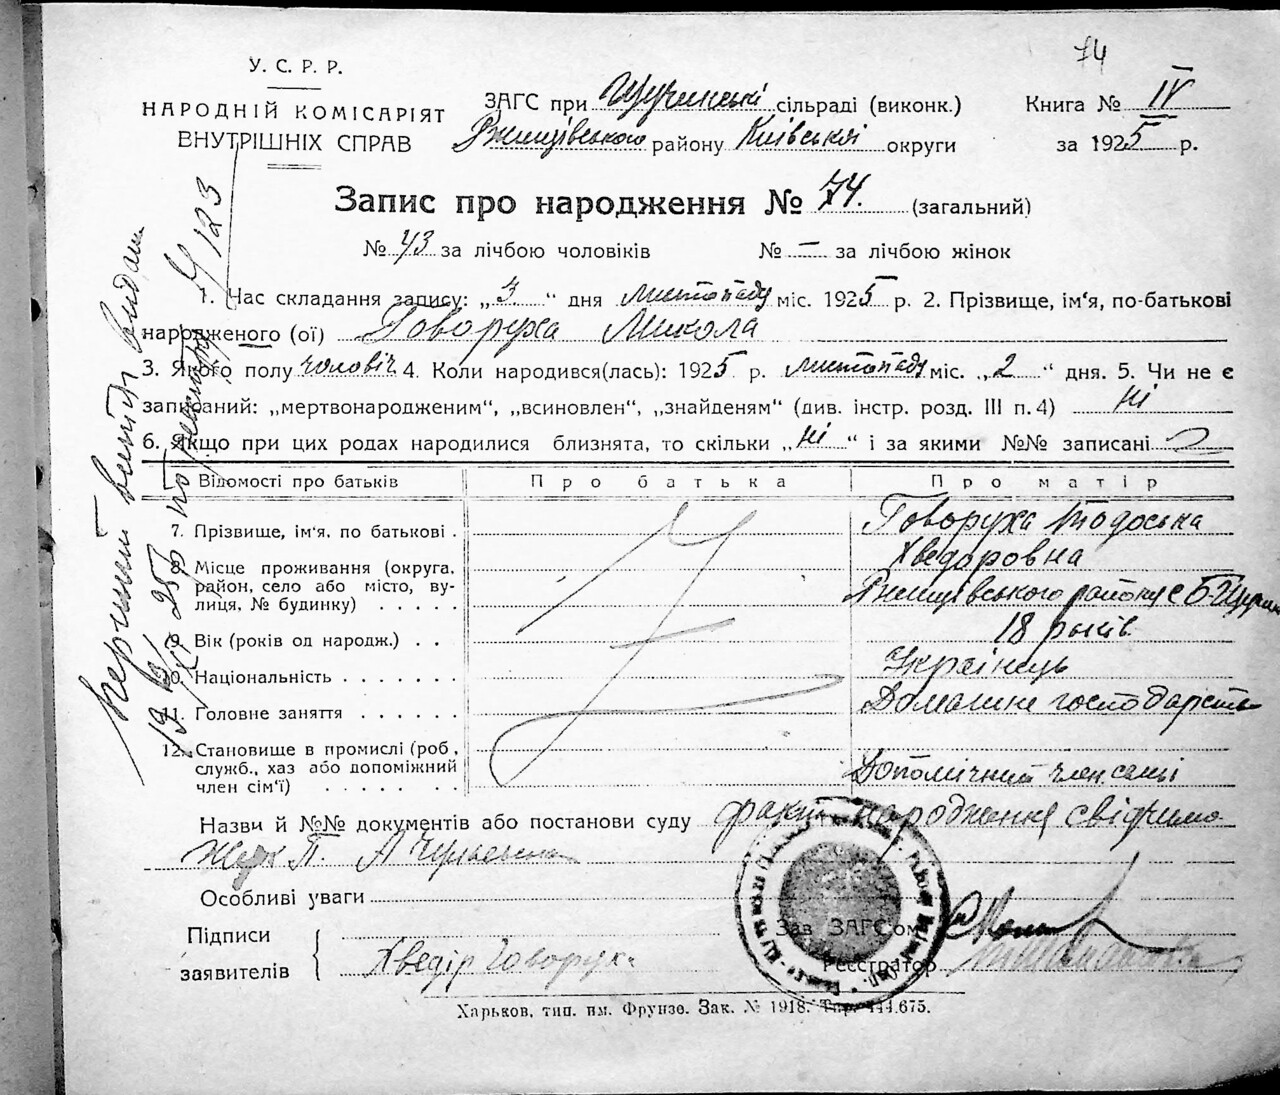 74
У. С. Р. Р.
НАРОДНІЙ КОМІСАРІЯТ
ВНУТРІШНІХ СПРАВ
ЗАГС при Щучинські сільраді (виконк.)
Ржищівського району Київської округи
Книга № IV
за 1925 р.
Запис про народження № 74. (загальний)
№ 43 за лічбою чоловіків № — за лічбою жінок
1. Час складання запису: „3" дня листопаду міс. 1925 р. 2. Прізвище, ім'я, по-батькові
народженого (ої) Говоруха Микола
3. Якого полу чоловіч 4. Коли народився(лась): 1925 р. листопаду міс. „2" дня. 5. Чи не є
записаний: „мертвонародженим", „всиновлен", „знайденям" (див. інстр. розд. III п. 4) ні
6. Якщо при цих родах народилися близнята, то скільки „ні" і за якими №№ записані
Відомості про батьків Про батька Про матір
7. Прізвище, ім'я, по батькові . Говоруха Тодоська
Хведоровна
8. Місце проживання (округа, район, село або місто, вулиця, № будинку) . . . . . Ржищівського району с Б-Щучин
9. Вік (років од народж.) . . 18 років
10. Національність . . . . . . . Українець
11. Головне заняття . . . . . . Домашне господарств
12. Становище в промислі (роб., служб., хаз або допоміжний член сім'ї) . . . . . . . Допомічний член семі
Назви й №№ документів або постанови суду факт народження свідчимо
Особливі уваги
Підписи
заявителів
Хведір Говоруха
Зав. ЗАГС'ом
Реєстратор
Харьков, тип. им. Фрунзе. Зак. № 1918. Тир. 444.675.
Перший витяг видан